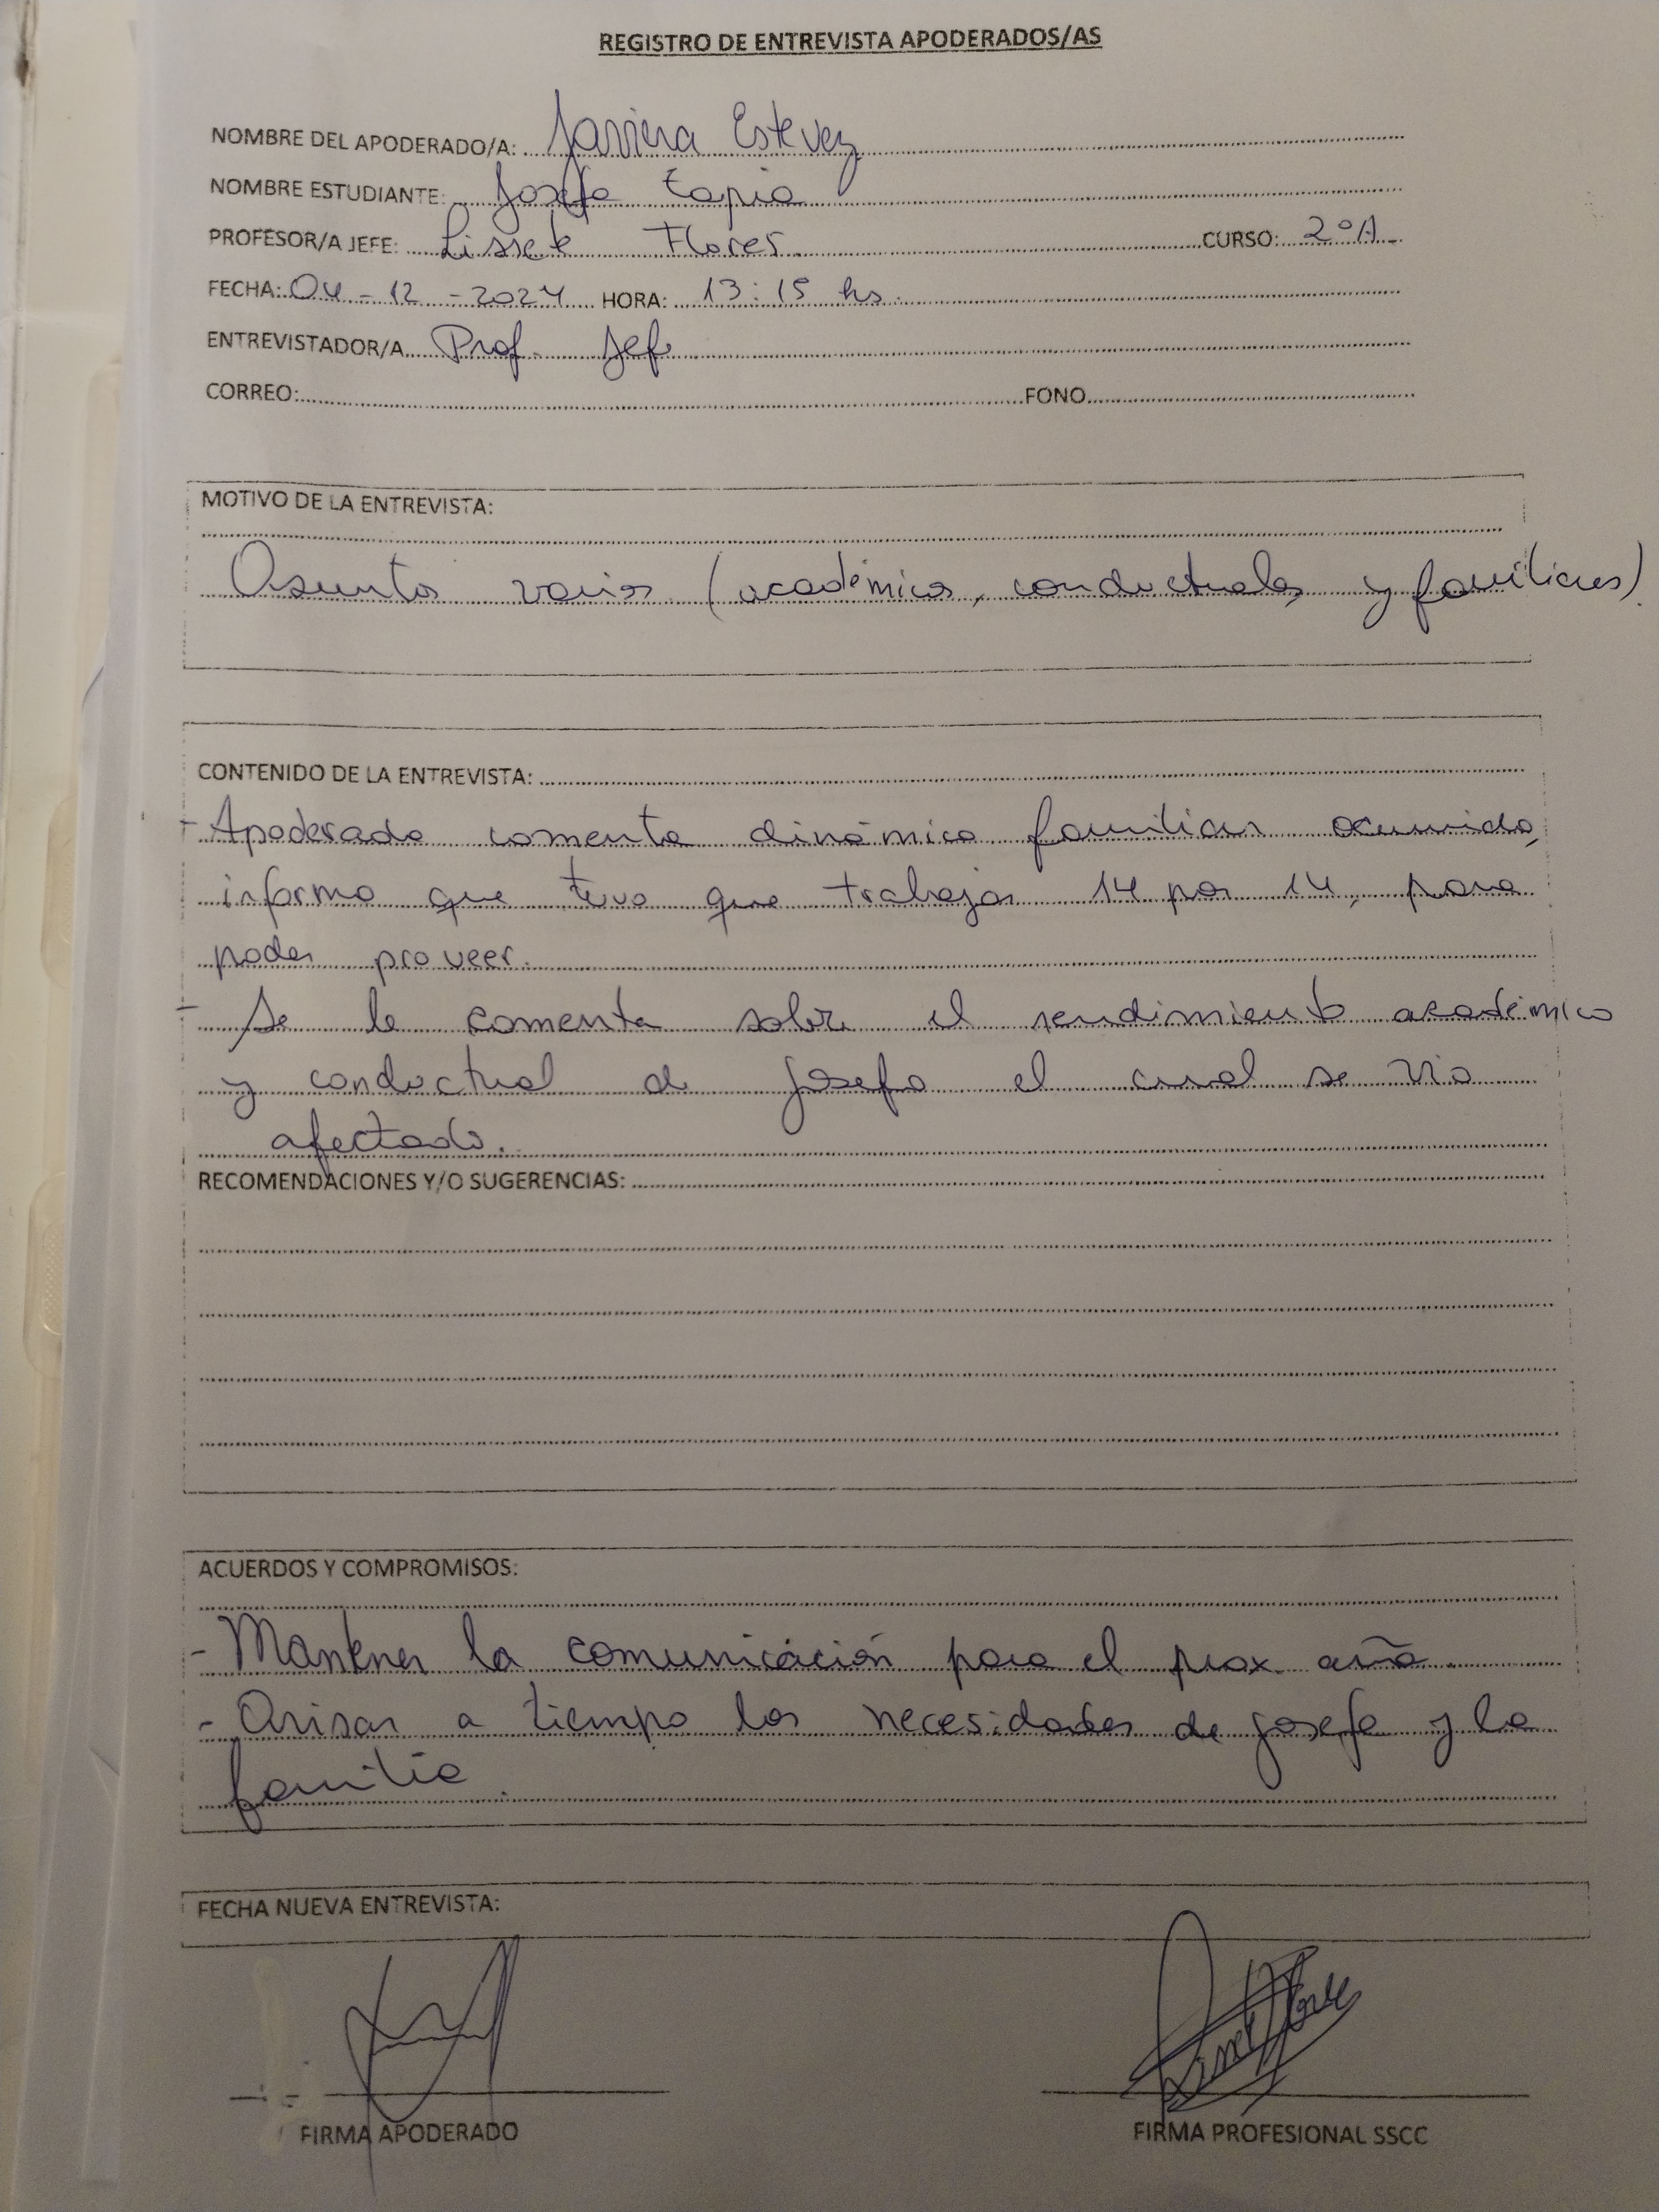 REGISTRO DE ENTREVISTA APODERADOS/AS
NOMBRE DEL APODERADO/A: Javiera Estevez
NOMBRE ESTUDIANTE: Josefa Tapia
PROFESOR/A JEFE: Lissete Flores CURSO: 2°A
FECHA: 04-12-2024 HORA: 13:15 hs.
ENTREVISTADOR/A Prof. Jefe
CORREO: FONO
MOTIVO DE LA ENTREVISTA:
Asuntos varios (académicos, conductuales y familiares).
CONTENIDO DE LA ENTREVISTA:
- Apoderada comenta dinámica familiar ocurrida,
informa que tuvo que trabajar 14 por 14, para
poder proveer.
- Se le comenta sobre el rendimiento académico
y conductual de Josefa el cual se vio
afectado.
RECOMENDACIONES Y/O SUGERENCIAS:
ACUERDOS Y COMPROMISOS:
- Mantener la comunicación para el prox. año
- Avisar a tiempo las necesidades de Josefa y la
familia.
FECHA NUEVA ENTREVISTA:
FIRMA APODERADO FIRMA PROFESIONAL SSCC